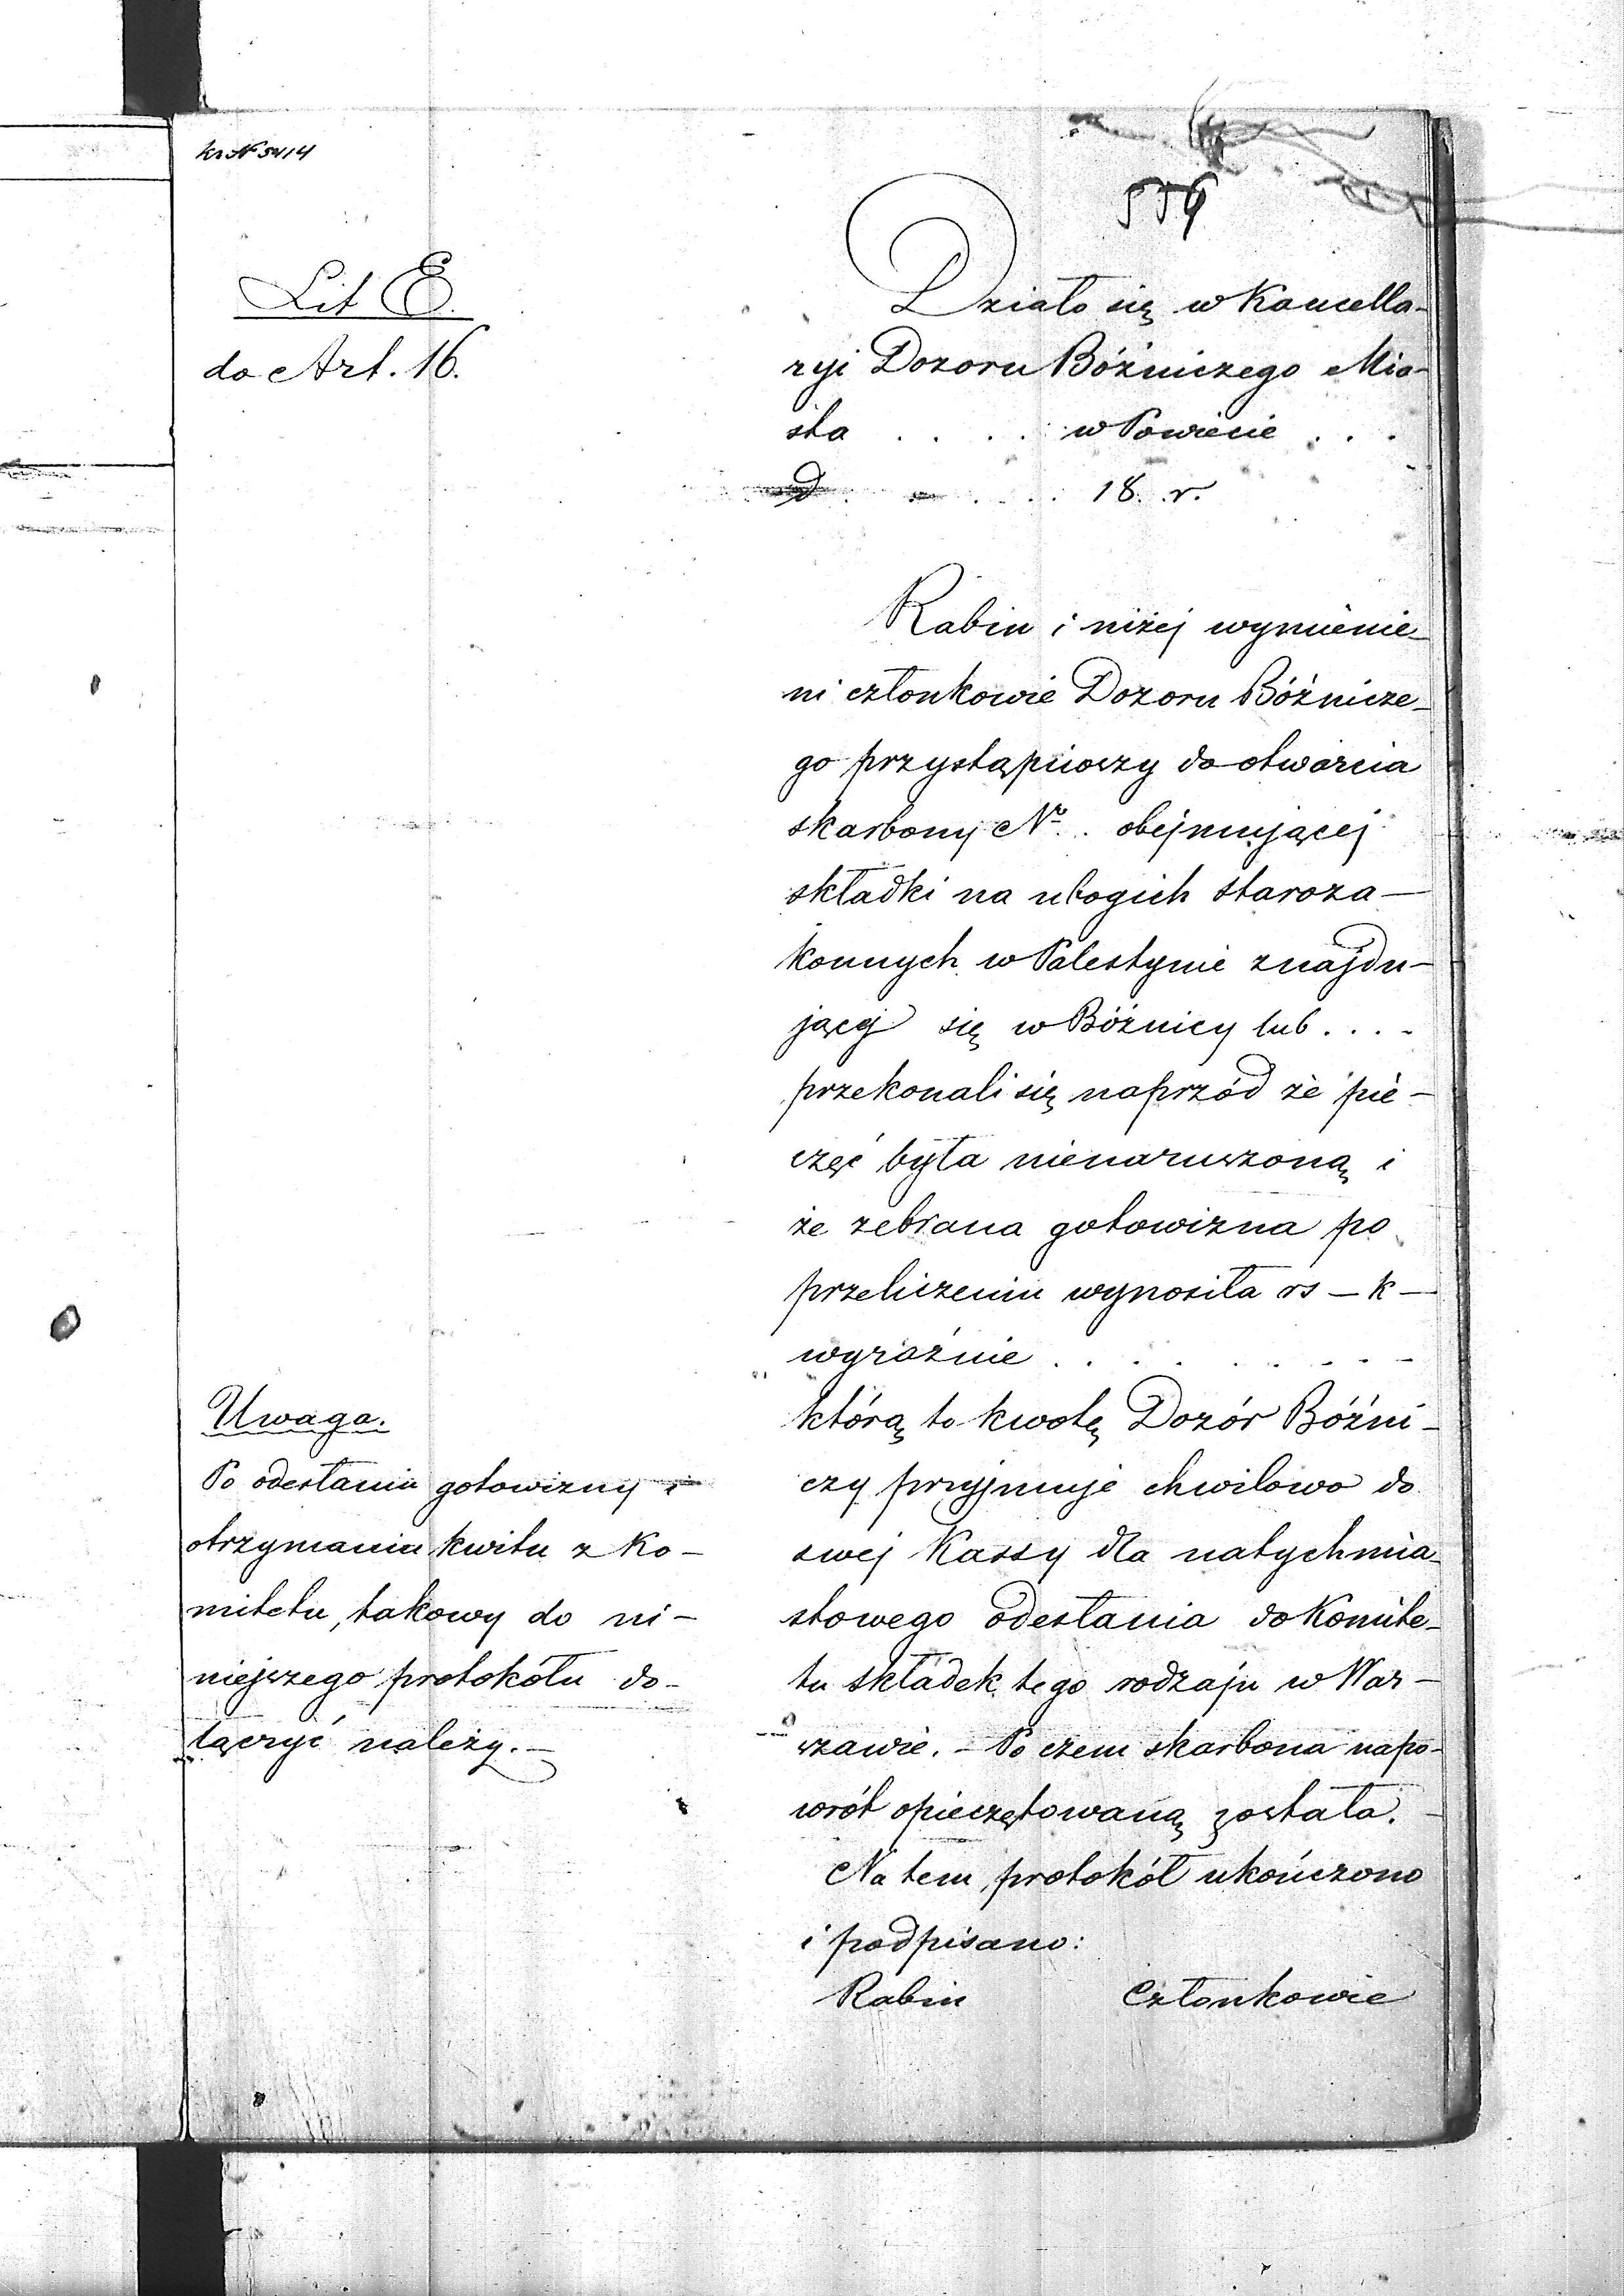 kr № 5414
559
Lit E.
do Art. 16.
Działo się w Kancella-
ryi Dozoru Bóźniczego Mia-
sta . . . . w Powiecie . . .
d . . . . . 18 . . r.
Rabin i niżej wymienie-
ni członkowie Dozoru Bóźnicze-
go przystąpiwszy do otwarcia
skarbony Nr . . obejmującej
składki na ubogich staroza-
konnych w Palestynie znajdu-
jącej się w Bóżnicy lub . . . .
przekonali się naprzód że pie-
częć była nienaruszoną i
że zebrana gotowizna po
przeliczeniu wynosiła rs – k –
wyraźnie . . . . . . . . .
którą to kwotę Dozór Bóźni-
czy przyjmuje chwilowo do
swej Kassy dla natychmia-
stowego odesłania do Komite-
tu składek tego rodzaju w War-
szawie. – Po czem skarbona napo-
wrót opieczętowaną została. –
Na tem protokół ukończono
i podpisano:
Rabin Członkowie
Uwaga.
Po odesłaniu gotowizny i
otrzymaniu kwitu z Ko-
mitetu, takowy do ni-
niejszego protokółu do-
łączyć należy. –